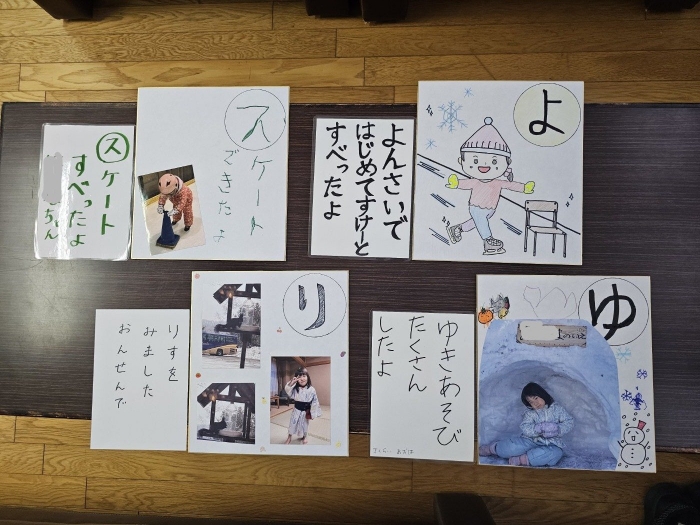 よ
よんさいで
はじめてすけーと
すべったよ
スケート
できたよ
スケート
すべったよ
ちん
ゆ
ゆきあそび
たくさん
したよ
り
りすを
みました
おんせんで